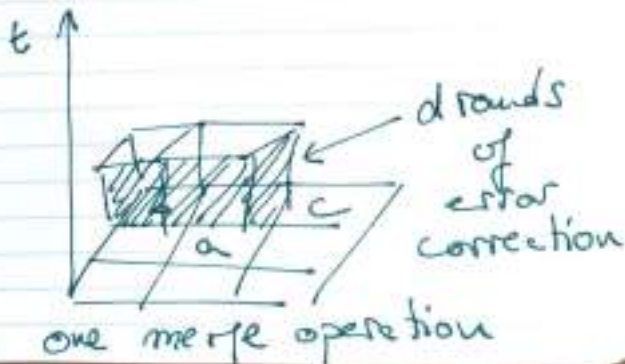 t
d rounds
of
error
correction
c
a
one merge operation